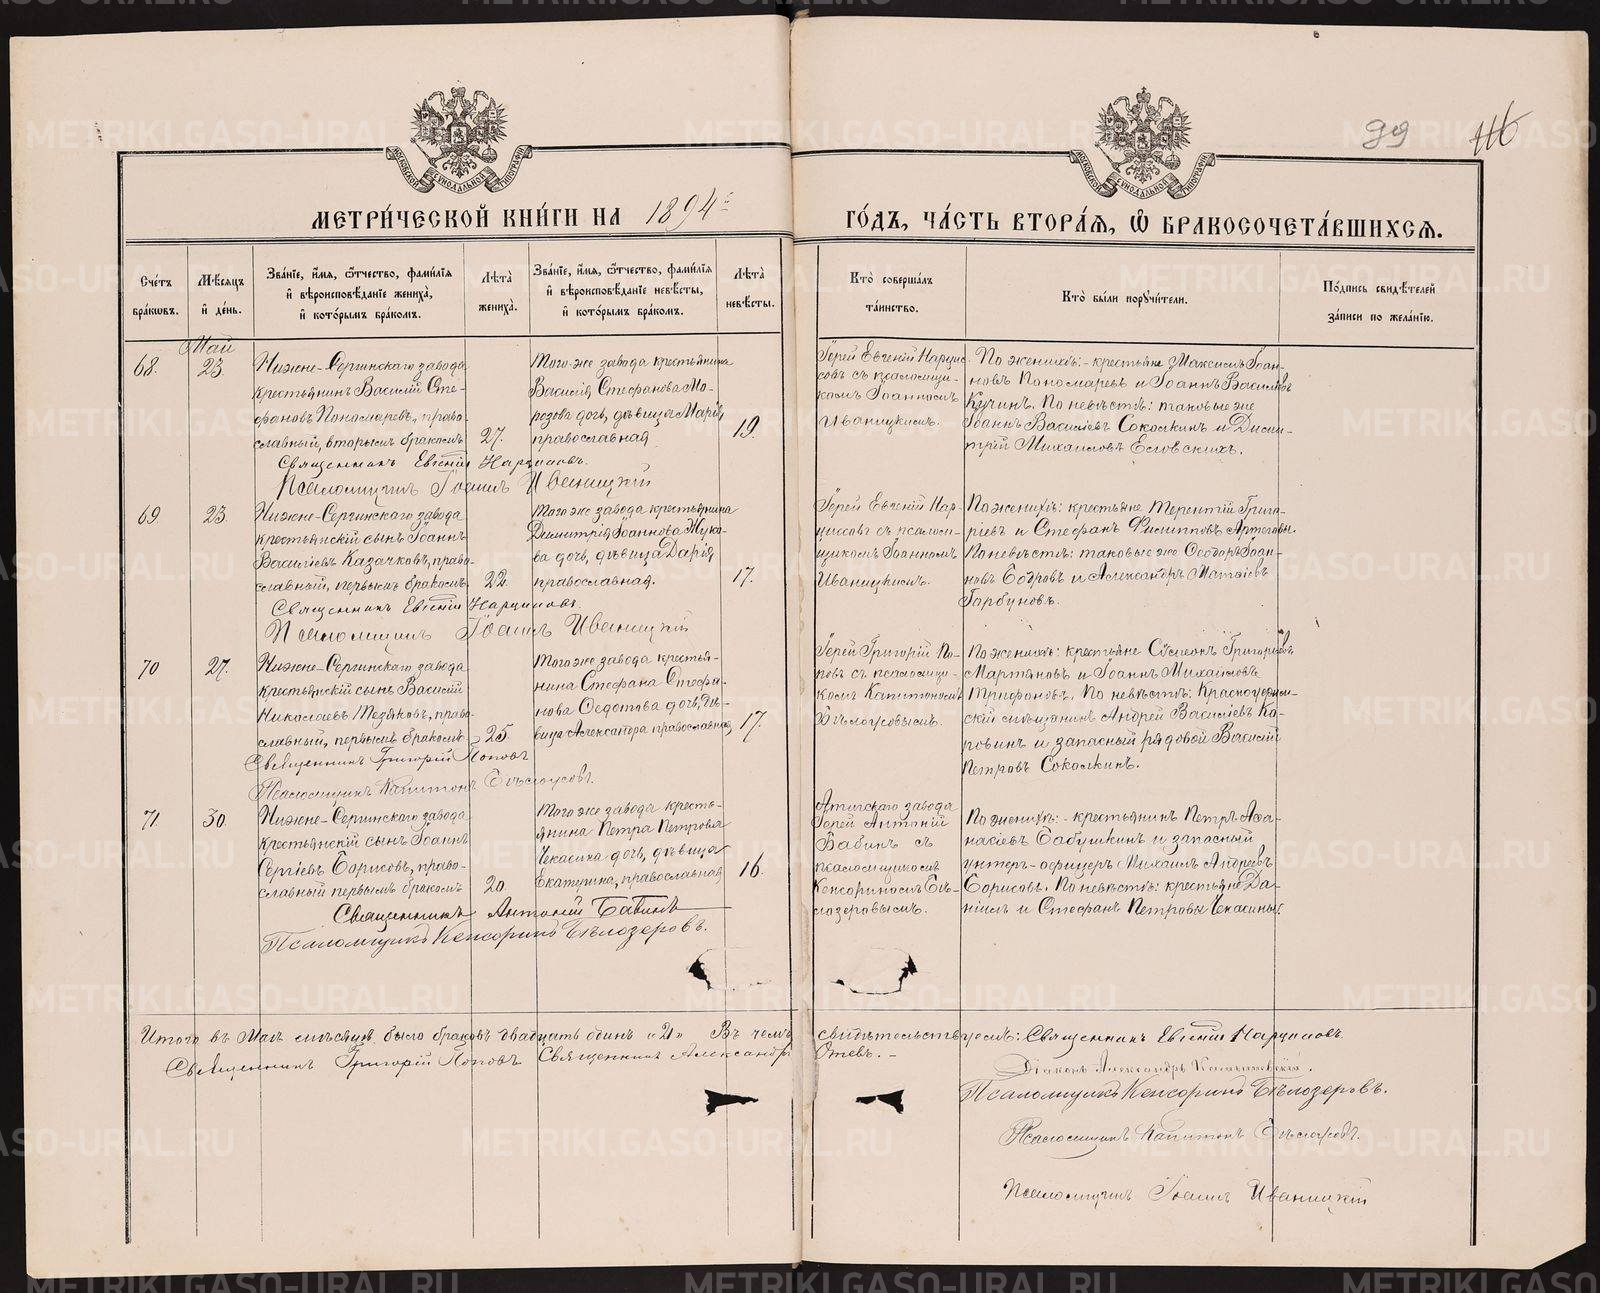 99
116
МОСКОВСКОЙ СѴНОДАЛЬНОЙ ТИПОГРАФІИ
МОСКОВСКОЙ СѴНОДАЛЬНОЙ ТИПОГРАФІИ
МЕТРИ́ЧЕСКОЙ КНИ́ГИ НА 1894 ГО́ДЪ, ЧА́СТЬ ВТОРА́Я, Ѽ БРАКОСОЧЕТА́ВШИХСЯ.
Сче́тъ бра́кωвъ.
Мѣ́сяцъ и҆ де́нь.
Зва́нїе, и҆́мя, ѻ҆́тчество, фами́лїя и҆ вѣроисповѣ́данїе жениха̀, и҆ кото́рымъ бра́комъ.
Лѣ́та̀ жениха̀.
Зва́нїе, и҆́мя, ѻ҆́тчество, фами́лїя и҆ вѣроисповѣ́данїе невѣ́сты, и҆ кото́рымъ бра́комъ.
Лѣ́та̀ невѣ́сты.
Кто̀ соверша́лъ та́инство.
Кто̀ бы́ли порꙋчи́тели.
По́дпись свидѣ́телей за́писи по жела́нїю.
Май
68.
23.
Нижне-Сергинскаго завода
крестьянинъ Василій Сте-
фановъ Пономаревъ, право-
славный, вторымъ бракомъ
27.
Того-же завода крестьянина
Василія Стефанова Мо-
розова дочь, дѣвица Марія
православная
19.
Іерей Евгеній Нарцис-
совъ съ псаломщи-
комъ Іоанномъ
Иваницкимъ.
По женихѣ: - крестьяне Максимъ Іоан-
новъ Пономаревъ и Іоаннъ Василіевъ
Кучинъ. По невѣстѣ: таковые же
Іоаннъ Василіевъ Соколкинъ и Дими-
трій Михаиловъ Есговскихъ.
Священникъ Евгеній Нарциссовъ.
Псаломщикъ Іоаннъ Иваницкій
69.
23.
Нижне-Сергинскаго завода
крестьянскій сынъ Іоаннъ
Василіевъ Казачковъ, право-
славный, первымъ бракомъ
22.
Того же завода крестьянина
Димитрія Іоаннова Жуко-
ва дочь, дѣвица Дарія
православная.
17.
Іерей Евгеній Нар-
циссовъ съ псалом-
щикомъ Іоанномъ
Иваницкимъ.
По женихѣ: крестьяне Терентій Григо-
ріевъ и Стефанъ Филипповъ
По невѣстѣ: таковые же Ѳеодоръ Іоан-
новъ Бодровъ и Александръ Матѳіевъ
Горбуновъ.
Священникъ Евгеній Нарциссовъ.
Псаломщикъ Іоаннъ Иваницкій
70
27.
Нижне-Сергинскаго завода
крестьянскій сынъ Василій
Николаевъ Тезяковъ, право-
славный, первымъ бракомъ
25.
Того же завода крестья-
нина Стефана Стефа-
нова Ѳедотова дочь, дѣ-
вица Александра православная
17.
Іерей Григорій По-
повъ съ псаломщи-
комъ Капитономъ
Бѣлоусовымъ.
По женихѣ: крестьяне Сѵмеонъ Григоріевъ
Мартьяновъ и Іоаннъ Михаиловъ
Трифоновъ. По невѣстѣ: Красноуфим-
скій мѣщанинъ Андрей Василіевъ Ка-
ровинъ и запасный рядовой Василій
Петровъ Соколкинъ.
Священникъ Григорій Поповъ
Псаломщикъ Капитонъ Бѣлоусовъ.
71.
30.
Нижне-Сергинскаго завода
крестьянскій сынъ Іоаннъ
Сергіевъ Борисовъ, право-
славный первымъ бракомъ
20.
Того же завода кресть-
янина Петра Петровича
Чекасина дочь, дѣвица
Екатерина, православная
16.
Атигскаго завода
Іерей Антоній
Бабинъ съ
псаломщикомъ
Кенсориномъ Бѣ-
лозеровымъ.
По женихѣ: - крестьянинъ Петръ Аѳа-
насіевъ Бабушкинъ и запасный
унтеръ-офицеръ Михаилъ Андреевъ
Борисовъ. По невѣстѣ: крестьяне Да-
ніилъ и Стефанъ Петровы Чекасины.
Священникъ Антоній Бабинъ
Псаломщикъ Кенсоринъ Бѣлозеровъ.
Итого въ Маѣ мѣсяцѣ было браковъ двадцать одинъ «21» Въ чемъ свидѣтельствуемъ: Священникъ Евгеній Нарциссовъ.
Священникъ Григорій Поповъ Священникъ Александръ
Діаконъ Александръ
Псаломщикъ Кенсоринъ Бѣлозеровъ.
Псаломщикъ Капитонъ Бѣлоусовъ.
Псаломщикъ Іоаннъ Иваницкій
METRIKI.GASO-URAL.RU